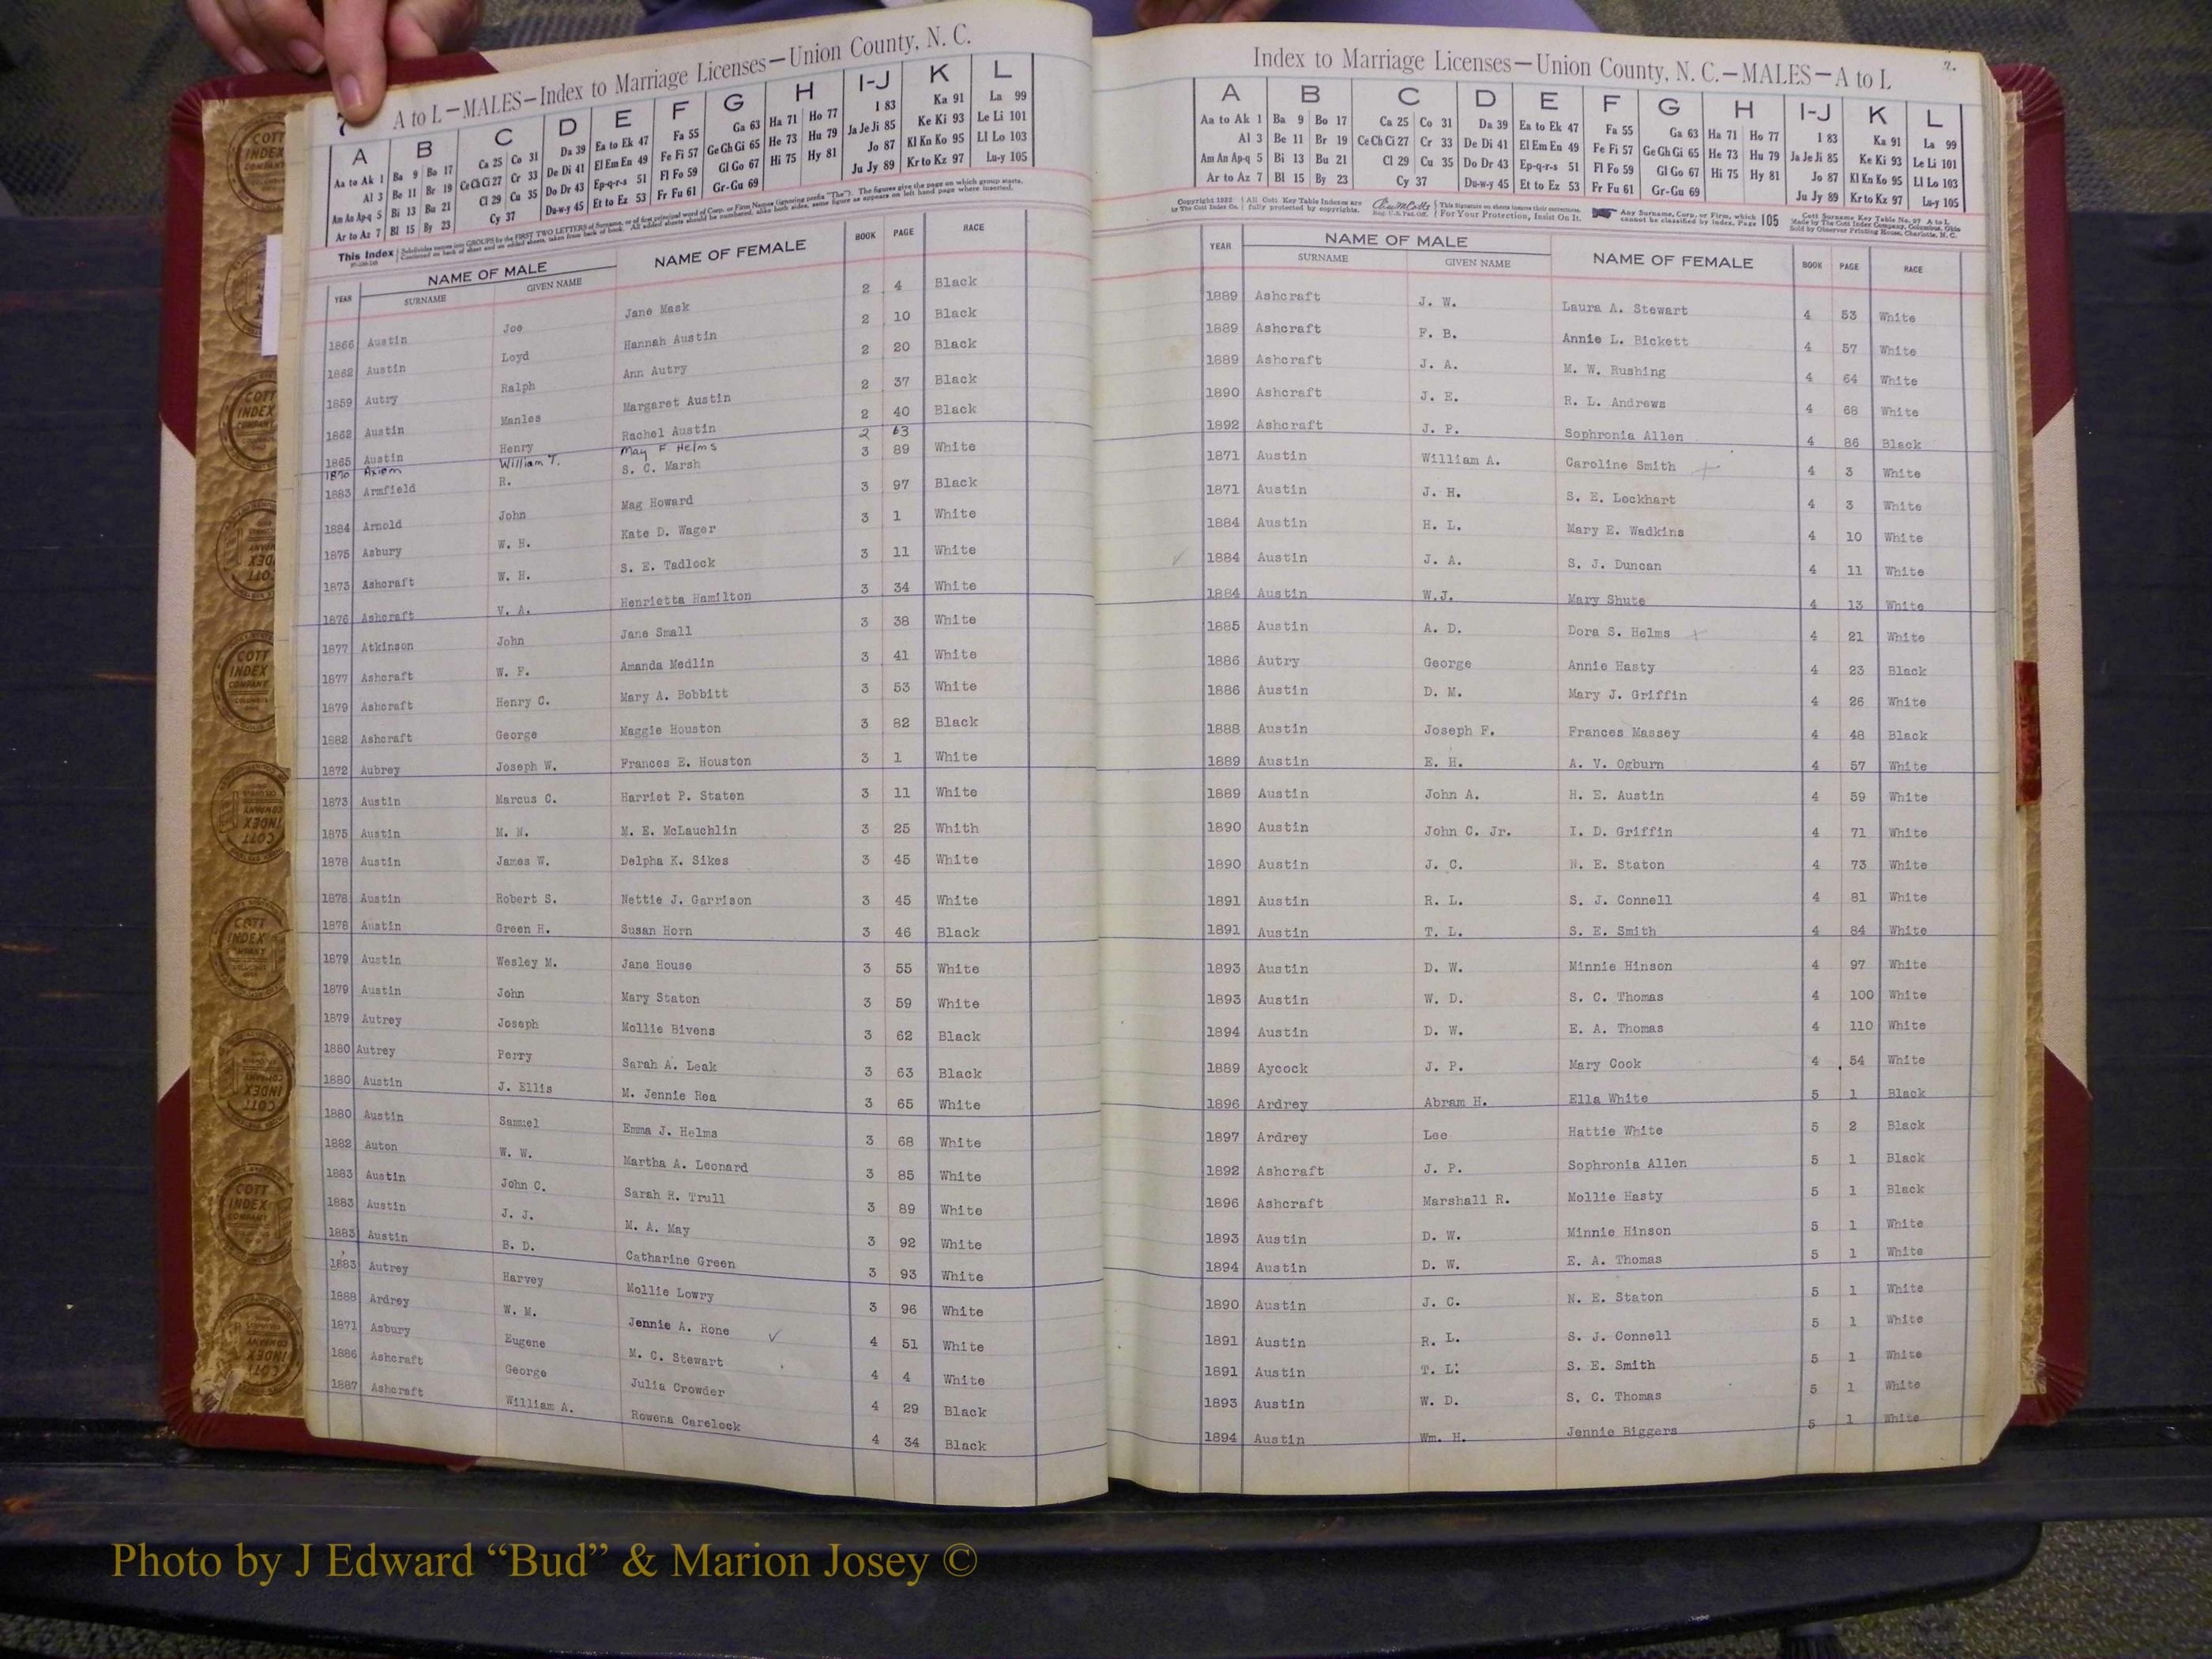 7
A to L — MALES — Index to Marriage Licenses — Union County, N. C.
A B C D E F G H I-J K L
Aa to Ak 1 Ba 9 Bo 17 Ca 25 Co 31 Da 39 Ea to Ek 47 Fa 55 Ga 63 Ha 71 Ho 77 I 83 Ka 91 La 99
Al 3 Be 11 Br 19 Ce Ch Ci 27 Cr 33 De Di 41 El Em En 49 Fe Fi 57 Ge Gh Gi 65 He 73 Hu 79 Ja Je Ji 85 Ke Ki 93 Le Li 101
Am An Ap-q 5 Bi 13 Bu 21 Cl 29 Cu 35 Do Dr 43 Ep-q-r-s 51 Fl Fo 59 Gl Go 67 Hi 75 Hy 81 Jo 87 Kl Kn Ko 95 Ll Lo 103
Ar to Az 7 Bl 15 By 23 Cy 37 Du-w-y 45 Et to Ez 53 Fr Fu 61 Gr-Gu 69 Ju Jy 89 Kr to Kz 97 Lu-y 105
This Index Subdivides names into GROUPS by the FIRST TWO LETTERS of Surname, or of first principal word of Corp. or Firm Names (ignoring prefix "The"). The figures give the page on which group starts.
Continued on back of sheet and on added sheets, taken from back of book. All added sheets should be numbered, alike both sides, same figure as appears on left hand page where inserted.
YEAR NAME OF MALE NAME OF FEMALE BOOK PAGE RACE
SURNAME GIVEN NAME
1866 Austin Joe Jane Mask 2 4 Black
1862 Austin Loyd Hannah Austin 2 10 Black
1859 Autry Ralph Ann Autry 2 20 Black
1862 Austin Manles Margaret Austin 2 37 Black
1865 Austin Henry Rachel Austin 2 40 Black
1870 Axiom William T. May F Helms 2 63
1883 Armfield R. S. C. Marsh 3 89 White
1884 Arnold John Mag Howard 3 97 Black
1875 Asbury W. H. Kate D. Wager 3 1 White
1873 Ashcraft W. H. S. E. Tadlock 3 11 White
1876 Ashcraft V. A. Henrietta Hamilton 3 34 White
1877 Atkinson John Jane Small 3 38 White
1877 Ashcraft W. F. Amanda Medlin 3 41 White
1879 Ashcraft Henry C. Mary A. Bobbitt 3 53 White
1882 Ashcraft George Maggie Houston 3 82 Black
1872 Aubrey Joseph W. Frances E. Houston 3 1 White
1873 Austin Marcus C. Harriet P. Staten 3 11 White
1875 Austin M. N. M. E. McLauchlin 3 25 Whith
1878 Austin James W. Delpha K. Sikes 3 45 White
1878 Austin Robert S. Nettie J. Garrison 3 45 White
1878 Austin Green H. Susan Horn 3 46 Black
1879 Austin Wesley M. Jane House 3 55 White
1879 Austin John Mary Staton 3 59 White
1879 Autrey Joseph Mollie Bivens 3 62 Black
1880 Autrey Perry Sarah A. Leak 3 63 Black
1880 Austin J. Ellis M. Jennie Rea 3 65 White
1880 Austin Samuel Emma J. Helms 3 68 White
1882 Auton W. W. Martha A. Leonard 3 85 White
1883 Austin John C. Sarah R. Trull 3 89 White
1883 Austin J. J. M. A. May 3 92 White
1883 Austin B. D. Catharine Green 3 93 White
1883 Autrey Harvey Mollie Lowry 3 96 White
1888 Ardrey W. M. Jennie A. Rone ✓ 4 51 White
1871 Asbury Eugene M. C. Stewart 4 4 White
1886 Ashcraft George Julia Crowder 4 29 Black
1887 Ashcraft William A. Rowena Carelock 4 34 Black
7.
Index to Marriage Licenses — Union County, N. C. — MALES — A to L
A B C D E F G H I-J K L
Aa to Ak 1 Ba 9 Bo 17 Ca 25 Co 31 Da 39 Ea to Ek 47 Fa 55 Ga 63 Ha 71 Ho 77 I 83 Ka 91 La 99
Al 3 Be 11 Br 19 Ce Ch Ci 27 Cr 33 De Di 41 El Em En 49 Fe Fi 57 Ge Gh Gi 65 He 73 Hu 79 Ja Je Ji 85 Ke Ki 93 Le Li 101
Am An Ap-q 5 Bi 13 Bu 21 Cl 29 Cu 35 Do Dr 43 Ep-q-r-s 51 Fl Fo 59 Gl Go 67 Hi 75 Hy 81 Jo 87 Kl Kn Ko 95 Ll Lo 103
Ar to Az 7 Bl 15 By 23 Cy 37 Du-w-y 45 Et to Ez 53 Fr Fu 61 Gr-Gu 69 Ju Jy 89 Kr to Kz 97 Lu-y 105
Copyright 1922 All Cott Key Table Indexes are This Signature on sheets insures their correctness. Any Surname, Corp. or Firm, which 105 Cott Surname Key Table No. 97 A to L
by The Cott Index Co. fully protected by copyrights. Reg. U.S. Pat. Off. For Your Protection, Insist On It. cannot be classified by Index, Page Made by The Cott Index Company, Columbus, Ohio
Sold by Observer Printing House, Charlotte, N. C.
YEAR NAME OF MALE NAME OF FEMALE BOOK PAGE RACE
SURNAME GIVEN NAME
1889 Ashcraft J. W. Laura A. Stewart 4 53 White
1889 Ashcraft F. B. Annie L. Bickett 4 57 White
1889 Ashcraft J. A. M. W. Rushing 4 64 White
1890 Ashcraft J. E. R. L. Andrews 4 68 White
1892 Ashcraft J. P. Sophronia Allen 4 86 Black
1871 Austin William A. Caroline Smith 4 3 White
1871 Austin J. H. S. E. Lockhart 4 3 White
1884 Austin H. L. Mary E. Wadkins 4 10 White
✓ 1884 Austin J. A. S. J. Duncan 4 11 White
1884 Austin W.J. Mary Shute 4 13 White
1885 Austin A. D. Dora S. Helms 4 21 White
1886 Autry George Annie Hasty 4 23 Black
1886 Austin D. M. Mary J. Griffin 4 26 White
1888 Austin Joseph F. Frances Massey 4 48 Black
1889 Austin E. H. A. V. Ogburn 4 57 White
1889 Austin John A. H. E. Austin 4 59 White
1890 Austin John C. Jr. I. D. Griffin 4 71 White
1890 Austin J. C. N. E. Staton 4 73 White
1891 Austin R. L. S. J. Connell 4 81 White
1891 Austin T. L. S. E. Smith 4 84 White
1893 Austin D. W. Minnie Hinson 4 97 White
1893 Austin W. D. S. C. Thomas 4 100 White
1894 Austin D. W. E. A. Thomas 4 110 White
1889 Aycock J. P. Mary Cook 4 54 White
1896 Ardrey Abram H. Ella White 5 1 Black
1897 Ardrey Lee Hattie White 5 2 Black
1892 Ashcraft J. P. Sophronia Allen 5 1 Black
1896 Ashcraft Marshall R. Mollie Hasty 5 1 Black
1893 Austin D. W. Minnie Hinson 5 1 White
1894 Austin D. W. E. A. Thomas 5 1 White
1890 Austin J. C. N. E. Staton 5 1 White
1891 Austin R. L. S. J. Connell 5 1 White
1891 Austin T. L. S. E. Smith 5 1 White
1893 Austin W. D. S. C. Thomas 5 1 White
1894 Austin Wm. H. Jennie Biggers 5 1 White
COTT INDEX COMPANY
Photo by J Edward “Bud” & Marion Josey ©